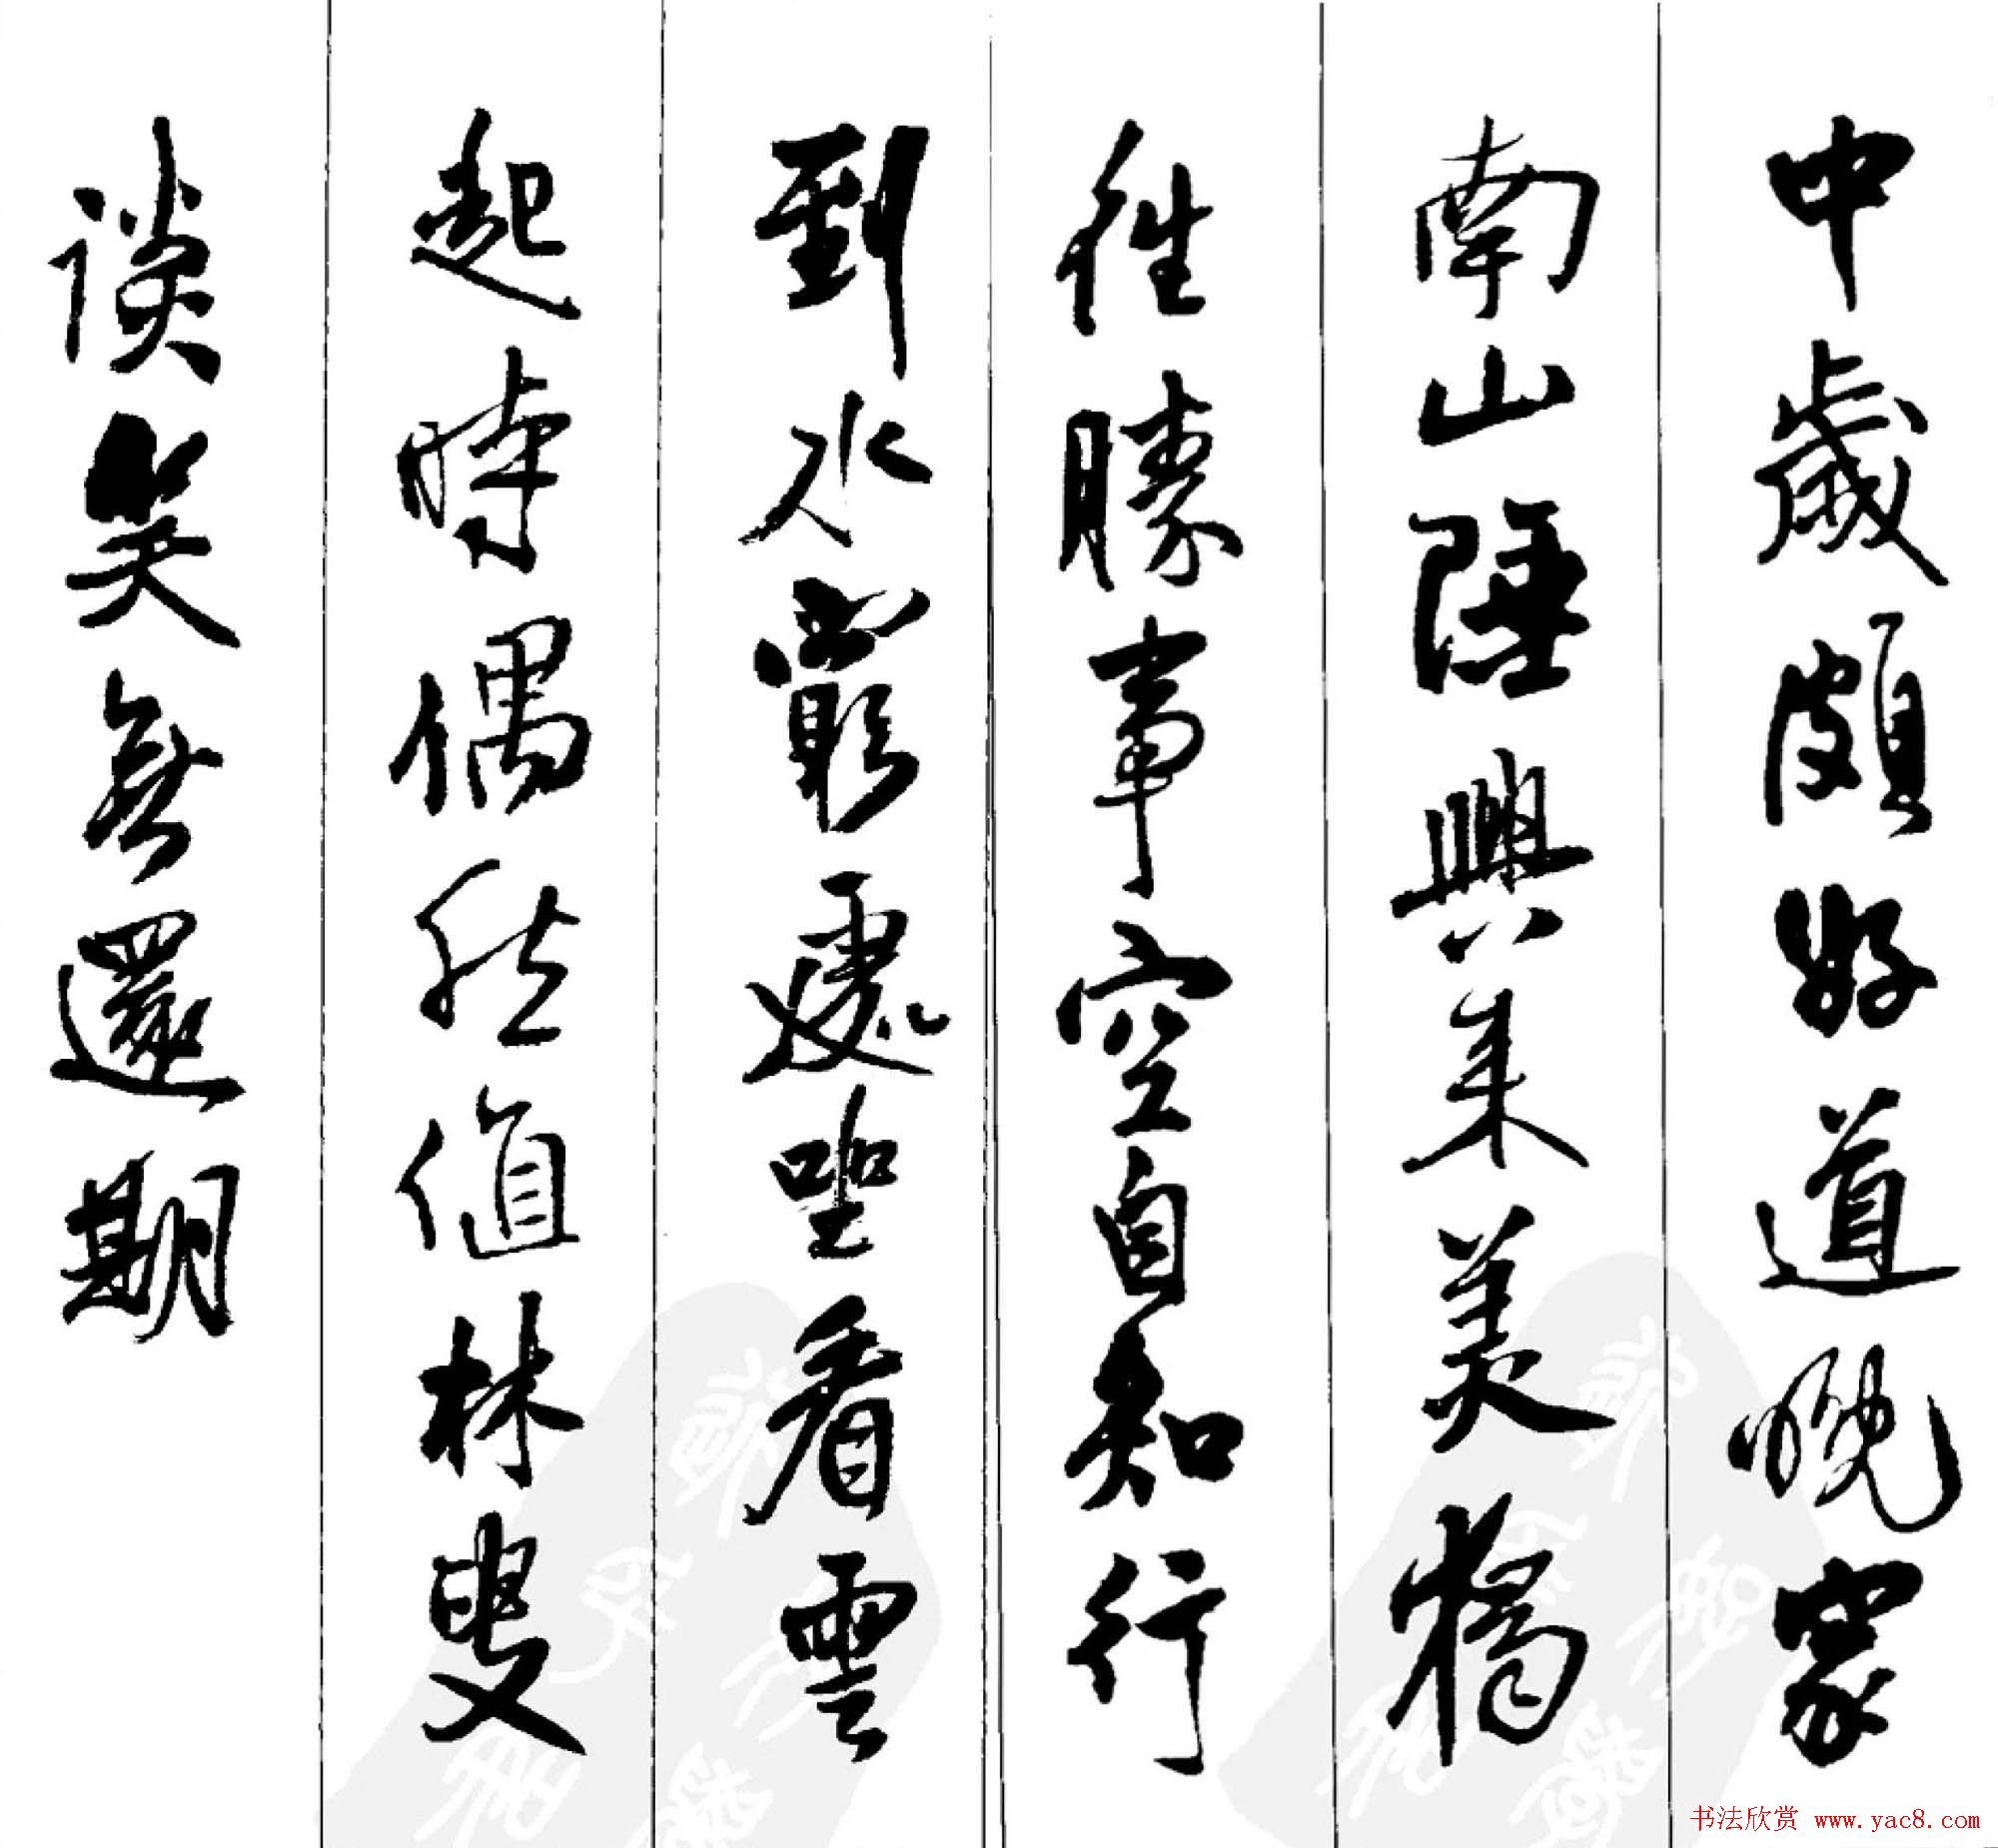 中歲頗好道晚家
南山陲興來美獨
往勝事空自知行
到水窮處坐看雲
起時偶然值林叟
談笑無還期
书法欣赏 www.yac8.com